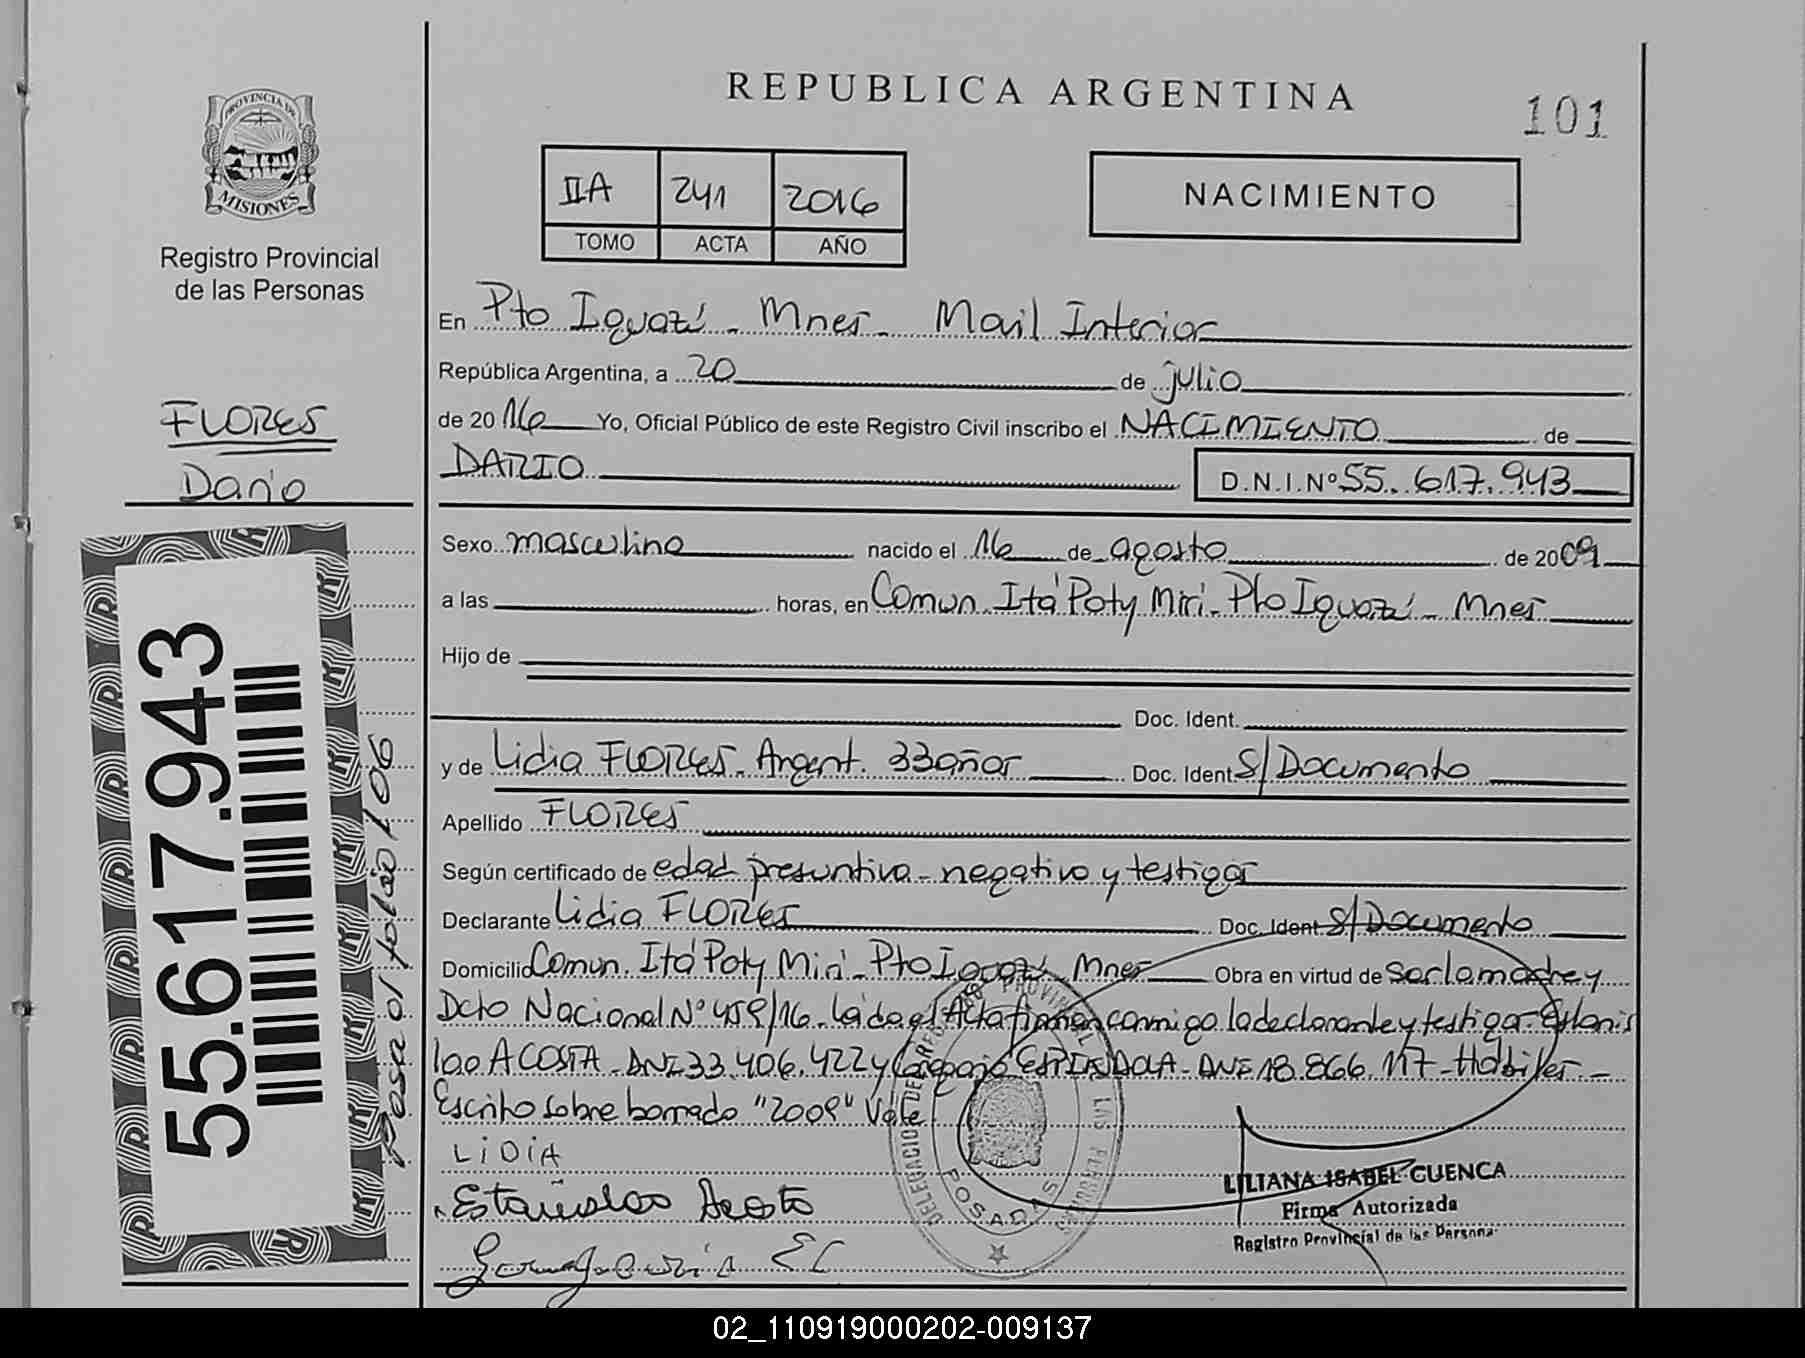 PROVINCIA DE
MISIONES
Registro Provincial
de las Personas
FLORES
Darío
55.617.943
Pasa al folio 106
REPUBLICA ARGENTINA
101
IIA 241 2016
TOMO ACTA AÑO
NACIMIENTO
En Pto Iguazú - Mnes - Movil Interior
República Argentina, a 20 de julio
de 2016 Yo, Oficial Público de este Registro Civil inscribo el NACIMIENTO de
DARIO D.N.I.Nº 55.617.943
Sexo masculino nacido el 16 de agosto de 2009
a las horas, en Comun. Itá Poty Miri - Pto Iguazú - Mnes
Hijo de
Doc. Ident.
y de Lidia FLORES - Argent. 33 años Doc. Ident S/Documento
Apellido FLORES
Según certificado de edad presuntiva - negativo y testigos
Declarante Lidia FLORES Doc. Ident S/Documento
Domicilio Comun. Itá Poty Miri - Pto Iguazú Mnes Obra en virtud de ser la madre y
Dcto Nacional Nº 459/16 - Leída el Acta firman conmigo la declarante y testigos: Estanis
lao ACOSTA - DNI 33.406.422 y ESPINDOLA - DNI 18.866.117 - Hábiles -
Escrito sobre borrado "2009" Vale
LiDiA
Estanislao Acosta
DELEGACION DEL REGISTRO PROVINCIAL DE LAS PERSONAS
POSADAS
LILIANA ISABEL CUENCA
Firma Autorizada
Registro Provincial de las Personas
02_110919000202-009137